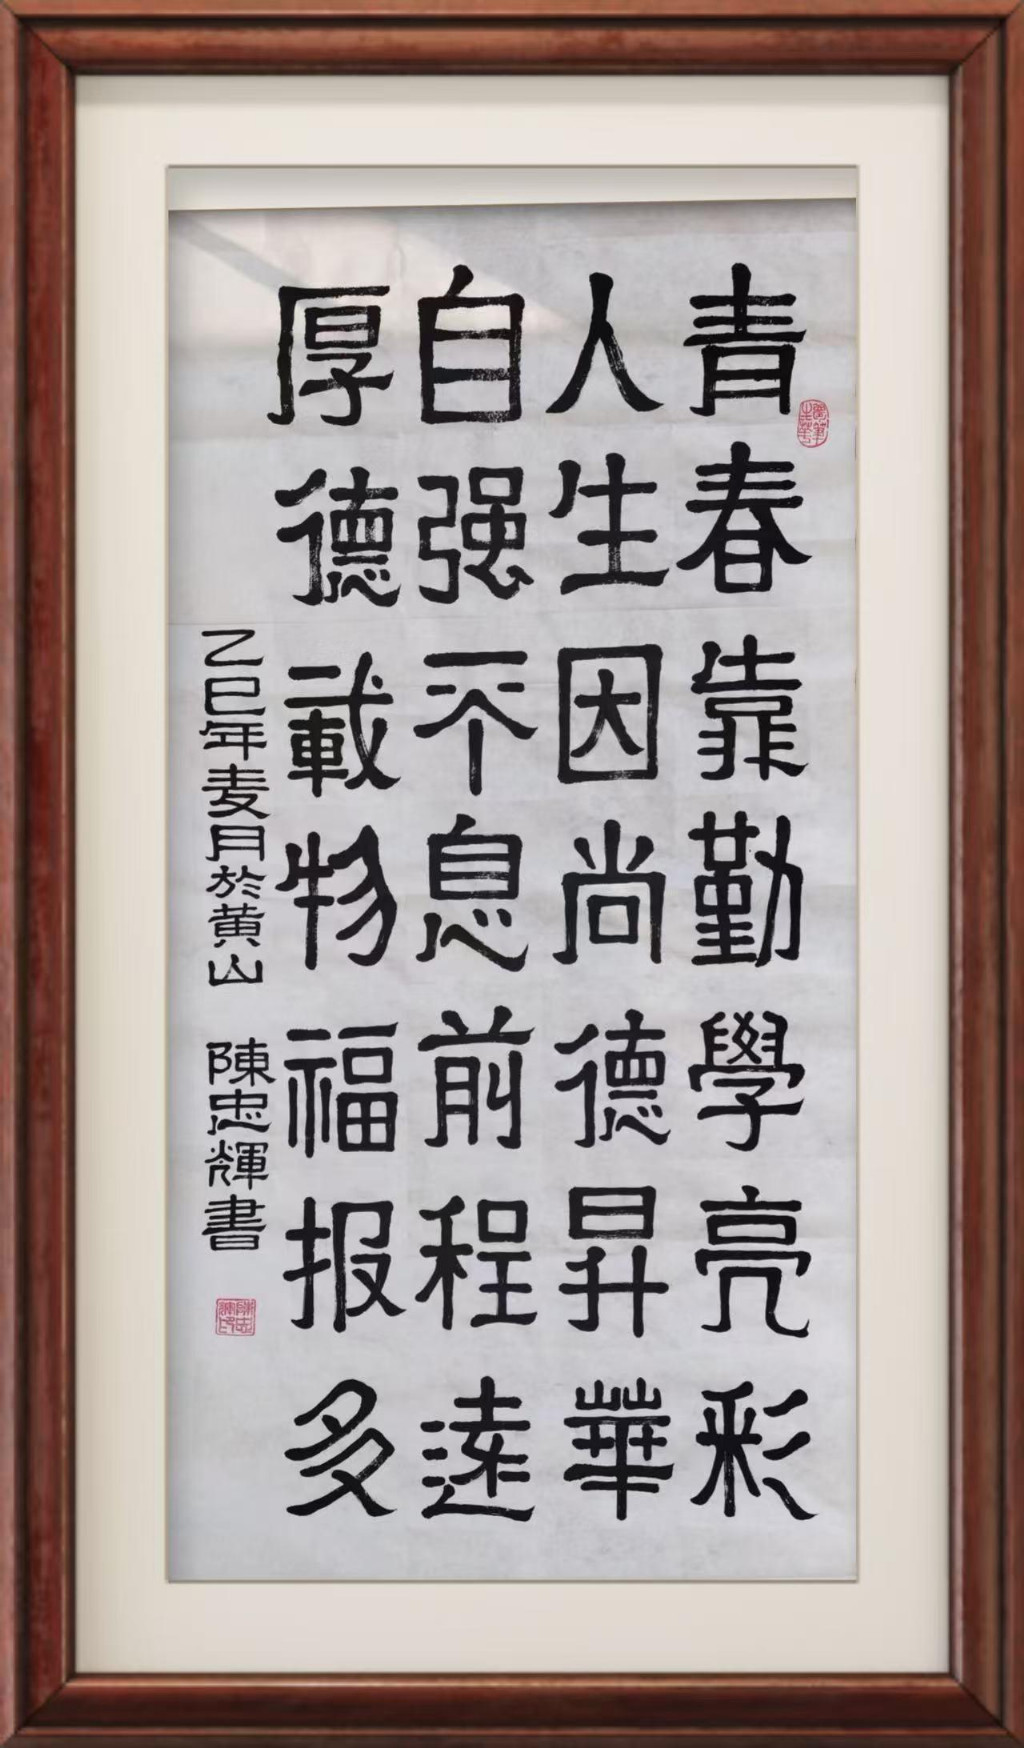 青春靠勤學亮彩
人生因尚德昇華
自强不息前程遠
厚德載物福报多
乙巳年麦月於黄山 陳忠輝書